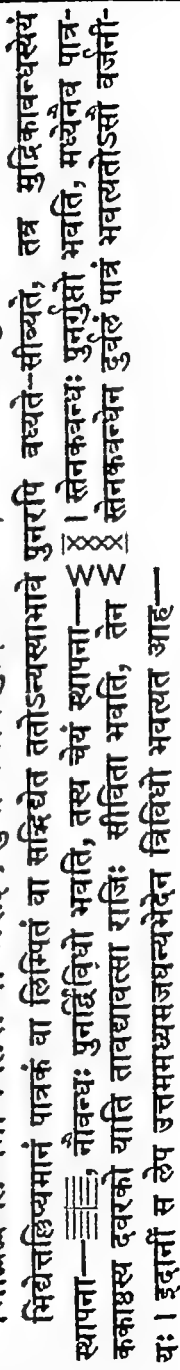 भिद्येत्तल्लिप्यमानं पात्रकं वा लिम्पितं वा सद्भिद्येत ततोऽन्यस्याभावे पुनरपि बध्यते-सीव्यते, तत्र मुद्रिकाबन्धस्येयं
स्थापना— , नौबन्धः पुनर्द्विविधो भवति, तस्य चेयं स्थापना— । स्तेनकबन्धः पुनर्गुप्तो भवति, मध्येनैव पात्र-
ककाष्ठस्य दवरको याति तावद्यावत्सा राजिः सीविता भवति, तेन स्तेनकबन्धेन दुर्बलं पात्रं भवत्यतोऽसौ वर्जनी-
यः । इदानीं स लेप उत्तममाध्यमजघन्यभेदेन त्रिविधो भवत्यत आह—